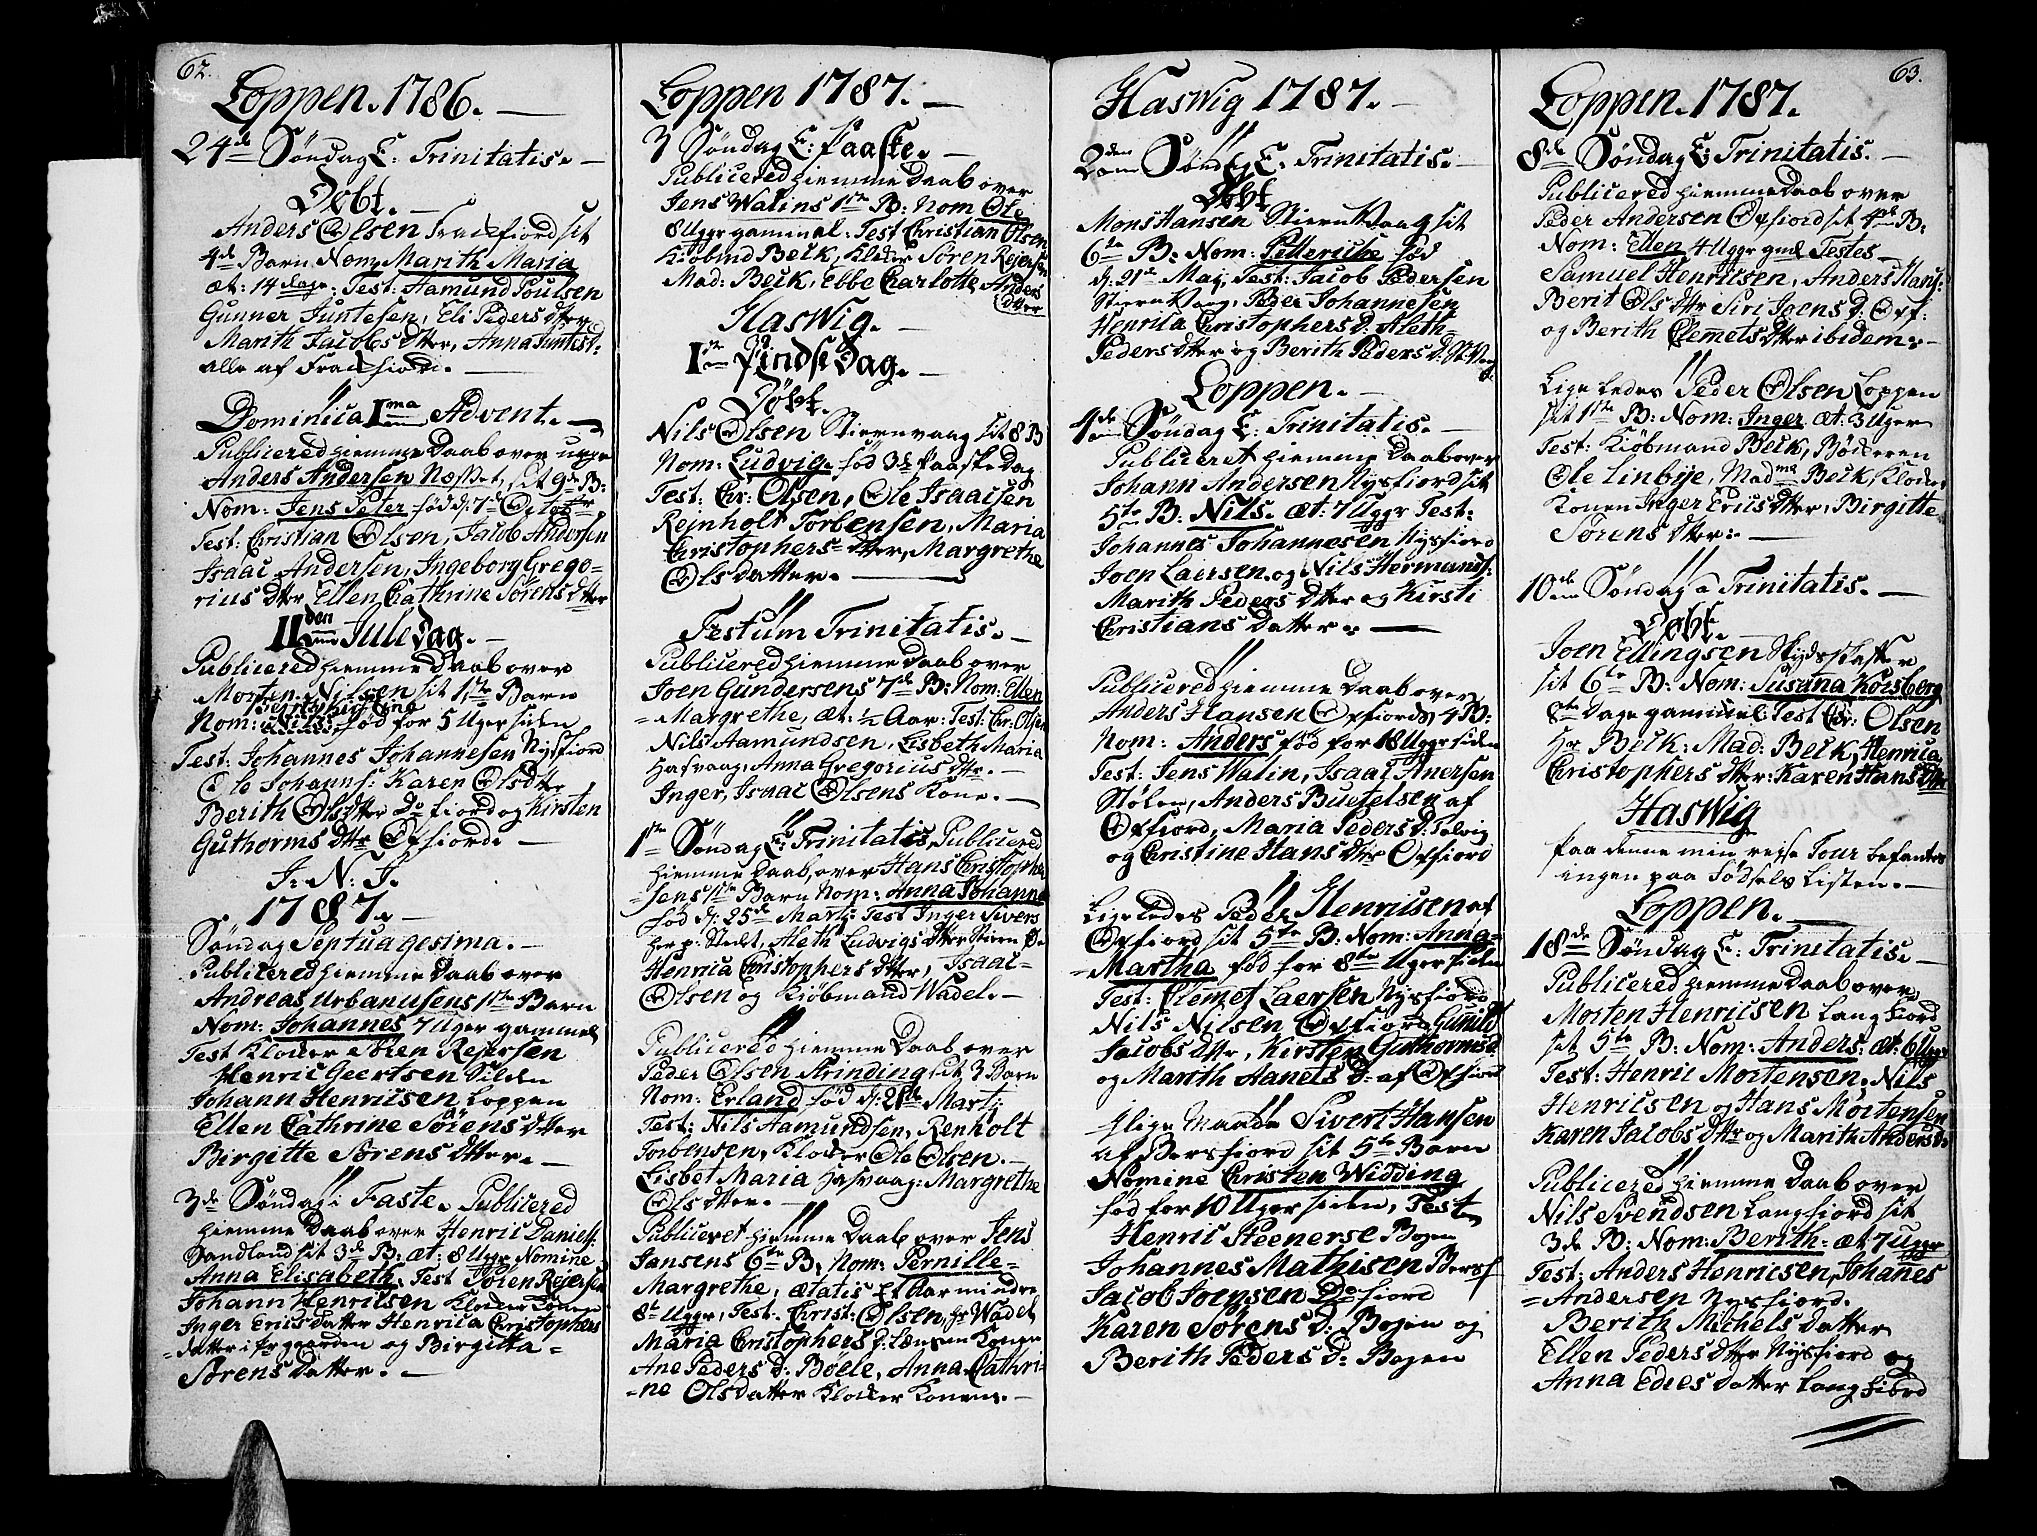 62.
Loppen. 1786.
24de Søndag E: Trinitatis.
Døbt.
Anders Olsen Frackfiord sit
4de Barn Nom: Marith Maria
æt: 14 dage. Test: Hamund Poulsen
Gunner Juntesen, Eli Peders dtter
Marith Jacobs dtter, Anna Juntesd:
alle af Frackfiord.
Dominica Ima Advent.
Publicered Hiemme Daab over
Anders Andersen sit 9de B:
Nom: Jens Peter fød d: 7de Octobr
Test: Christian Olsen, Jacob Andersen
Isaac Andersen, Ingeborg Grego-
rius dtter Ellen Cathrine Sørens dtter
IIden Juledag.
Publicered Hiemme Daab over
Morten Nilsen sit 1ste Barn
Nom: fød for 5 Uger siden
Test: Johannes Johannesen Nysfiord
Ole Johanns: Karen Olsdtter
Berith Olsdtter Do fiord og Kirsten
Guthorms dtter Oxfiord.
J: N: J.
1787.
Søndag Septuagesima.
Publicered Hiemme Daab over
Andreas Urbanusens 1ste Barn
Nom: Johannes 7 Uger gammel
Test Klocker Søren Rejersen
Henric Geertsen Silden
Johann Henricsen Loppen
Ellen Cathrine Sørens dtter
Birgitte Sørens dtter.
3de Søndag i Faste. Publicered
Hiemme Daab over Henric Daniels:
Sandland sit 3de B: æt: 8 Uger Nomine
Anna Elisabeth. Test Søren Rejersen
Johann Henricsen Klocker Konen
Inger Erics datter Henrica Christophers
datter i Præstgaarden og Birgitta
Sørens Datter.
Loppen 1787.
3 Søndag E: Paaske.
Publicered Hiemme Daab over
Jens Walins 1ste B: Nom Ole
8 Uger gammel: Test Christian Olsen
Kiøbmd Beck, Klocker Søren Rejersen
Mad: Beck, Ebbe Charlotte Anders
dtter
Haswig.
Iste Pindse Dag.
Døbt.
Nils Olsen Stiernvaag sit 8 B
Nom: Ludvig. fød 3de Paaske Dag
Test: Chr: Olsen, Ole Isaacsen
Rejnholt Torbensen, Maria
Christophers dtter, Margrethe
Olsdatter.
Festum Trinitatis.
Publicered Hiemme Daab over
Joen Gundersens 7de B: Nom: Ellen
Margrethe, æt: 1/2 Aar: Test: Chr: Olsen
Nils Aamundsen, Lisbeth Maria
Hasvaag, Anna Gregorius dtr.
Inger, Isaac Olsens Kone.
1ste Søndag E: Trinitatis, Publicered
Hiemme Daab, over Hans Christoph-
sens 1ste Barn Nom: Anna Johanna
fød d: 25de Martj: Test Inger Sivers
Aleth Ludvigs dtter
Henrica Christophers dtter, Isaac
Olsen og Kiøbmand Wadel.
Publicered Hiemme Daab over
Peder Olsen Strinding sit 3 Barn
Nom: Erland fød d: 21de Martj:
Test: Nils Aamundsen, Renholt
Torbensen, Klocker Ole Olsen.
Lisbet Maria Hasvaag: Margrethe
Ols dtter.
Publiceret Hiemme Daab over Jens
Jansens 6te B: Nom: Pernille
Margrethe, ætatis Et Aar mindre
8t Uger, Test: Christ: Olsen, Hr Wadel
Maria Christophers D:
Ane Peders D: Boele, Anna Cathri-
ne Olsdatter Klocker Konen.
Haswig 1787.
2den Søndag E: Trinitatis.
Døbt
Mons Hansen Stiernvaag sit
6te B: Nom: Petteriche fød
d: 21de Maj, Test: Jacob Pedersen
Stiernvaag, Peder Johannesen
Henrica Christophers D: Aleth
Peders dtter og Berith Peders D:
Loppen.
4de Søndag E: Trinitatis.
Publiceret Hiemme Daab over
Johann Andersen Nysfiord sit
5te B: Nils. æt: 7 Uger Test:
Johannes Johannesen Nysfiord
Joen Laersen og Nils Hermands:
Marith Peders dtter og Kirsti
Christians Datter.
Publicered Hiemme Daab over
Anders Hansen Oxfiords 4 B:
Nom: Anders fød for 18 Uger siden
Test: Jens Walin, Isaac Anersen
Stølen, Anders Buetelsen af
Oxfiord, Maria Peders D: Talvig
og Christine Hans dtter Oxfiord
Ligeledes Peder Henricsen af
Oxfiord sit 5te B: Nom: Anna
Martha fød for 8te Uger siden
Test: Clemet Laersen Nysfiord
Nils Nilsen Oxfiord Gunild
Jacobs dtter, Kirsten Guthormsd
og Marith Aanets D: af Oxfiord
I lige Maade Sivert Hansen
af Bersfiord sit 5te Barn
Nomine Christen Widding
fød for 10 Uger siden, Test
Henric Steenerse Bogen
Johannes Mathisen Bersf
Jacob Joensen Do fiord
Karen Sørens D: Bogen og
Berith Peders D: Bogen
63.
Loppen. 1787.
8de Søndag E: Trinitatis.
Publicered Hiemme Daab over
Peder Andersen Oxfiord sit 4de B:
Nom: Ellen 4 Uger gml Testes
Samuel Henricsen, Anders Hans:
Berit Ols dtter Siri Joens D: Oxf:
og Berith Clemets dtter ibidem.
Lige ledes Peder Olsen Loppen
sit 1ste B: Nom: Inger æt: 3 Uger
Test: Kiøbmand Beck, Bødkeren
Ole Linbye, Madme Beck, Klocker
Konen Inger Erics dtter, Birgitte
Sørens dtter.
10de Søndag a Trinitatis.
Døbt.
Joen Ellingsen Skydsskaffer
sit 6te B: Nom: Susana Korsberg
8te Dage gammel Test Chr: Olsen
Hr Beck: Mad: Beck, Henrica
Christophers dtter: Karen Hans dtter
Haswig
Paa denne min rejse Tour befantes
ingen paa Fødsels Listen.
Loppen.
18de Søndag E: Trinitatis.
Publicered Hiemme Daab over
Morten Henricsen Langfiord
sit 5te B: Nom: Anders: æt: 6 Uger
Test: Henric Mortensen, Nils
Henricsen og Hans Mortensen
Karen Jacobs dtter og Marith Anders D:
Publicered Hiemme Daab over
Nils Svendsen Langfiord sit
3de B: Nom: Berith: æt 7 Uger
Test: Anders Henricsen, Johanes
Andersen Nysfiord.
Berith Michels Datter
Ellen Peders dtter Nysfiord og
Anna Edies Datter Langfiord